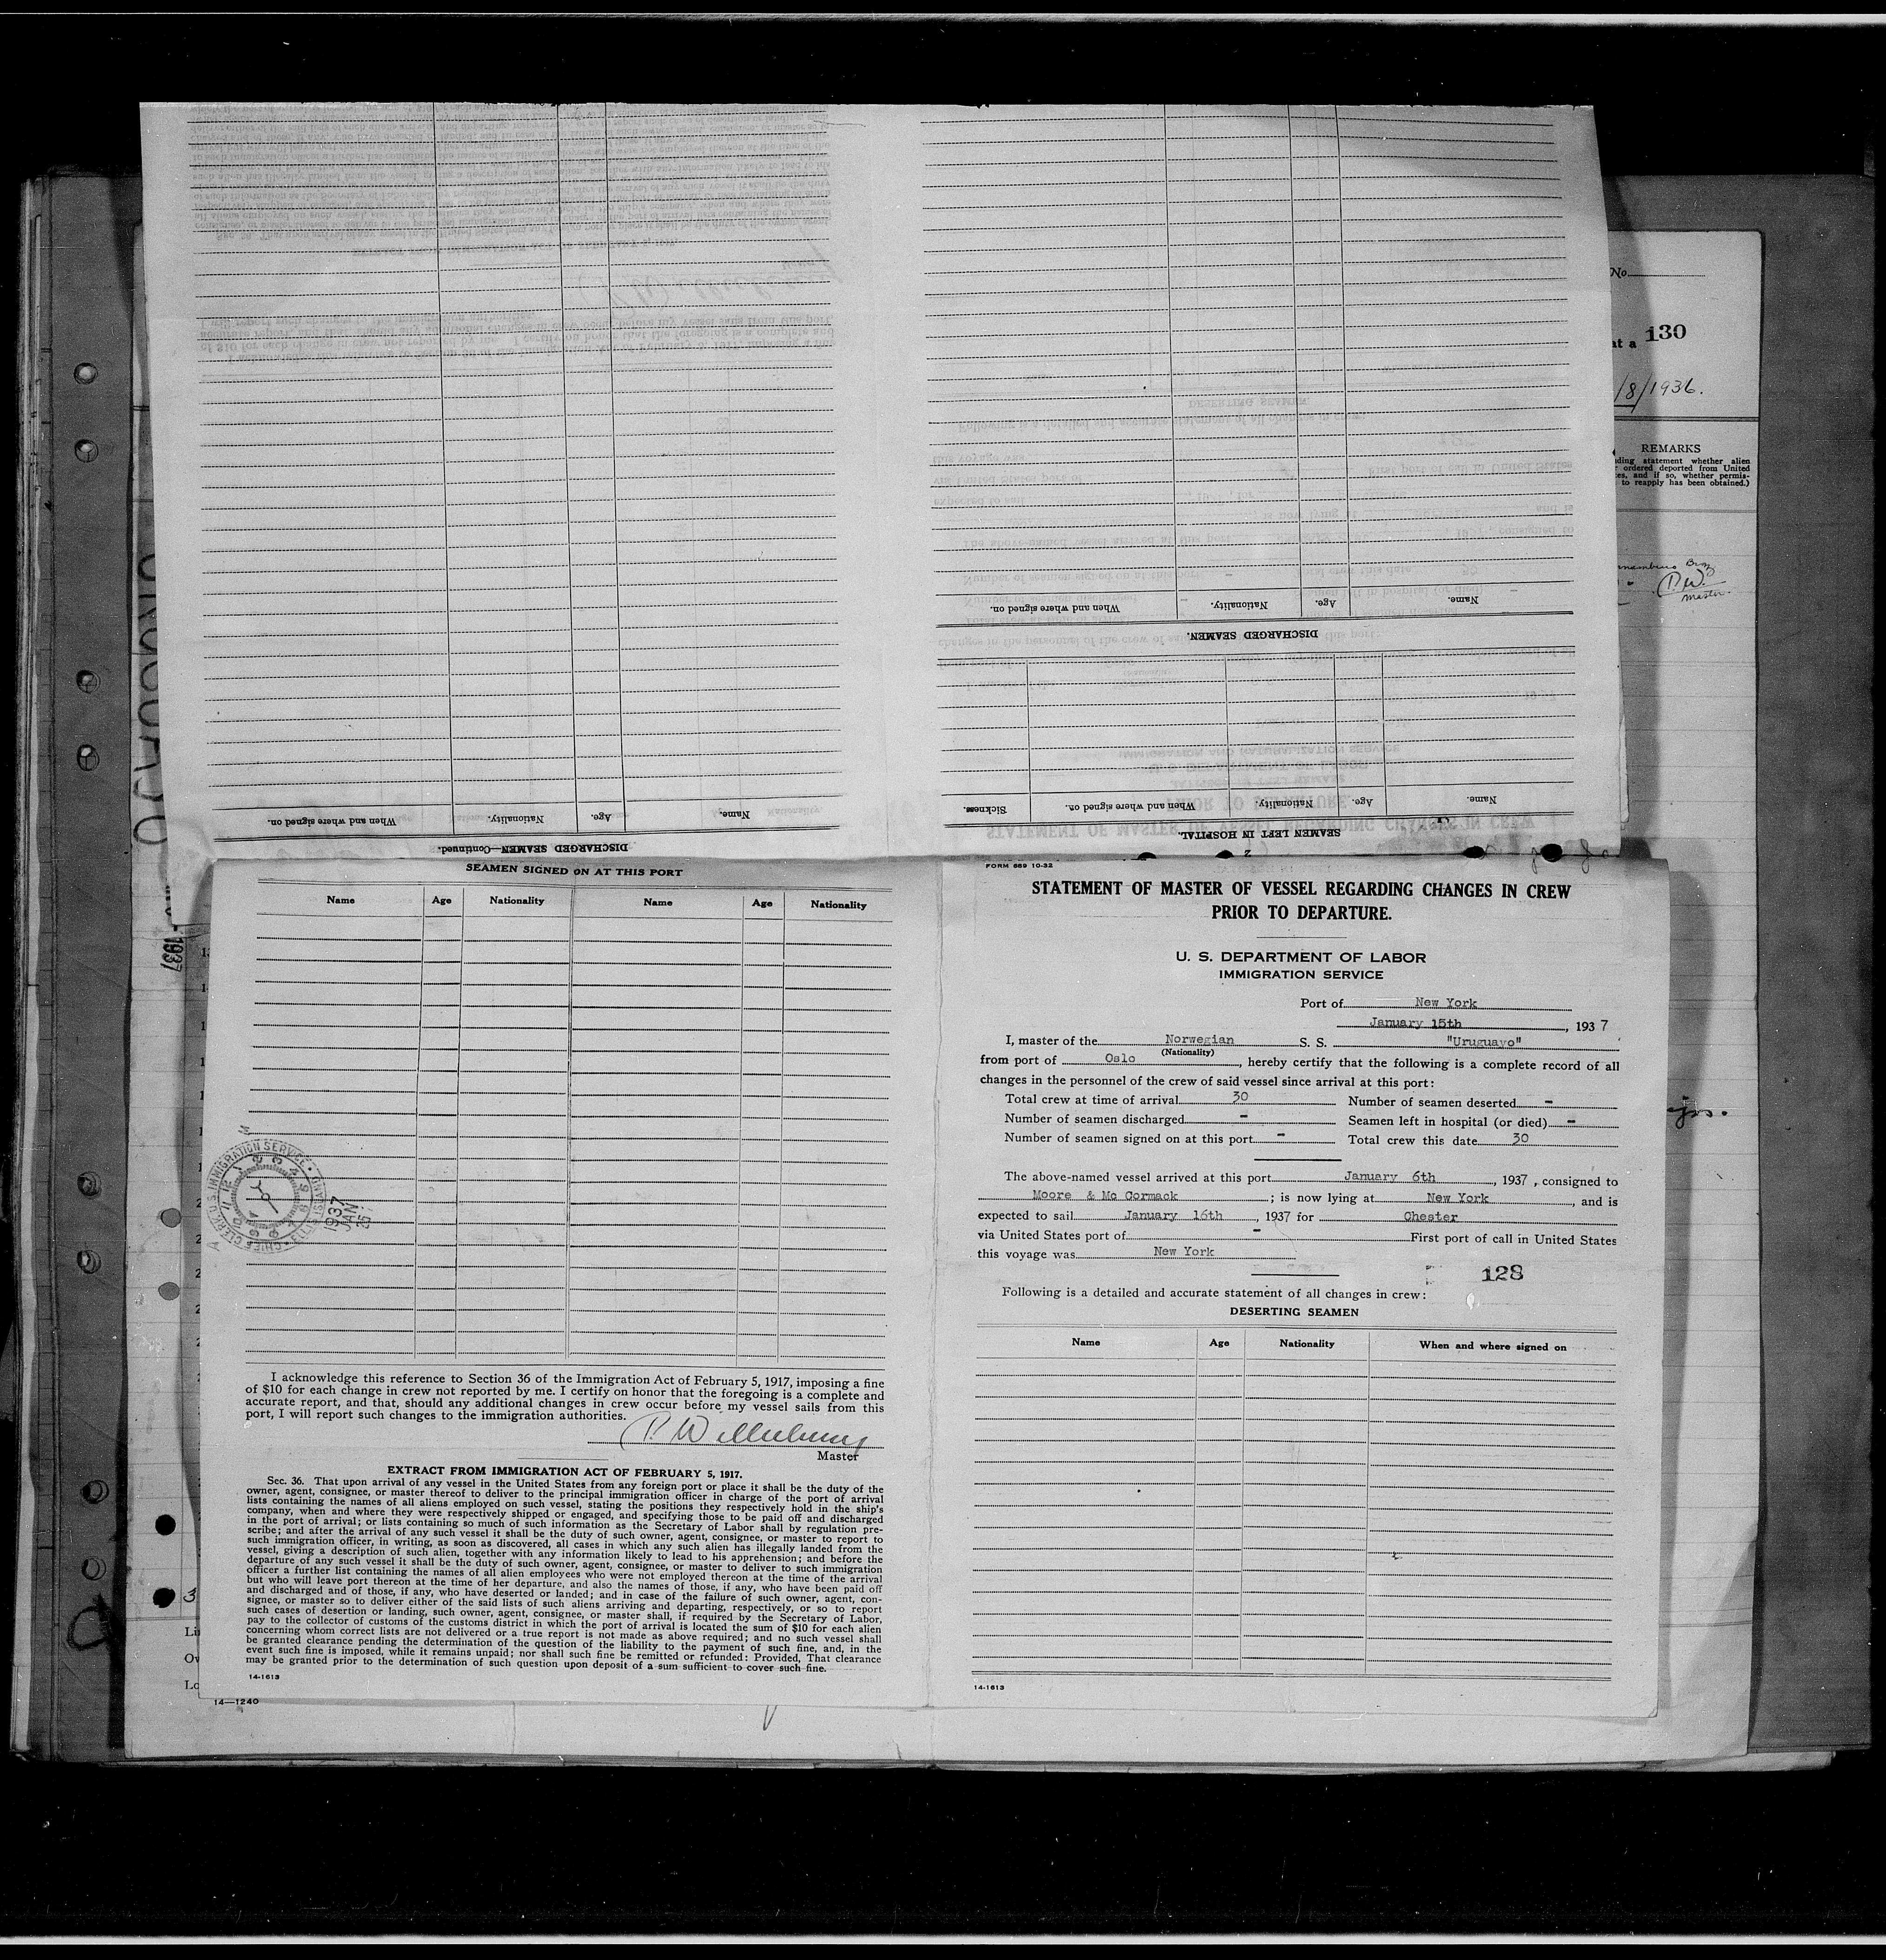 DISCHARGED SEAMEN—Continued.
Name. Age. Nationality. When and where signed on.
2
SEAMEN LEFT IN HOSPITAL.
Name. Age. Nationality. When and where signed on. Sickness.
DISCHARGED SEAMEN.
Name. Age. Nationality. When and where signed on.
No.
at a 130
/8/1936.
REMARKS
ding statement whether alien
r ordered deported from United
es, and if so, whether permis-
to reapply has been obtained.)
P.W.
Master.
1937
SEAMEN SIGNED ON AT THIS PORT
Name Age Nationality Name Age Nationality
CHIEF CLERK, U.S. IMMIGRATION SERVICE • ELLIS ISLAND •
1937
JAN
I acknowledge this reference to Section 36 of the Immigration Act of February 5, 1917, imposing a fine
of $10 for each change in crew not reported by me. I certify on honor that the foregoing is a complete and
accurate report, and that, should any additional changes in crew occur before my vessel sails from this
port, I will report such changes to the immigration authorities.
Master
EXTRACT FROM IMMIGRATION ACT OF FEBRUARY 5, 1917.
Sec. 36. That upon arrival of any vessel in the United States from any foreign port or place it shall be the duty of the
owner, agent, consignee, or master thereof to deliver to the principal immigration officer in charge of the port of arrival
lists containing the names of all aliens employed on such vessel, stating the positions they respectively hold in the ship's
company, when and where they were respectively shipped or engaged, and specifying those to be paid off and discharged
in the port of arrival; or lists containing so much of such information as the Secretary of Labor shall by regulation pre-
scribe; and after the arrival of any such vessel it shall be the duty of such owner, agent, consignee, or master to report to
such immigration officer, in writing, as soon as discovered, all cases in which any such alien has illegally landed from the
vessel, giving a description of such alien, together with any information likely to lead to his apprehension; and before the
departure of any such vessel it shall be the duty of such owner, agent, consignee, or master to deliver to such immigration
officer a further list containing the names of all alien employees who were not employed thereon at the time of the arrival
but who will leave port thereon at the time of her departure, and also the names of those, if any, who have been paid off
and discharged and of those, if any, who have deserted or landed; and in case of the failure of such owner, agent, con-
signee, or master so to deliver either of the said lists of such aliens arriving and departing, respectively, or so to report
such cases of desertion or landing, such owner, agent, consignee, or master shall, if required by the Secretary of Labor,
pay to the collector of customs of the customs district in which the port of arrival is located the sum of $10 for each alien
concerning whom correct lists are not delivered or a true report is not made as above required; and no such vessel shall
be granted clearance pending the determination of the question of the liability to the payment of such fine, and, in the
event such fine is imposed, while it remains unpaid; nor shall such fine be remitted or refunded: Provided, That clearance
may be granted prior to the determination of such question upon deposit of a sum sufficient to cover such fine.
14-1613
14—1240
FORM 689 10-32
STATEMENT OF MASTER OF VESSEL REGARDING CHANGES IN CREW
PRIOR TO DEPARTURE.
U. S. DEPARTMENT OF LABOR
IMMIGRATION SERVICE
Port of New York
January 15th, 1937
I, master of the Norwegian S. S. "Uruguayo"
(Nationality)
from port of Oslo, hereby certify that the following is a complete record of all
changes in the personnel of the crew of said vessel since arrival at this port:
Total crew at time of arrival 30 Number of seamen deserted -
Number of seamen discharged - Seamen left in hospital (or died) -
Number of seamen signed on at this port - Total crew this date 30
The above-named vessel arrived at this port January 6th, 1937, consigned to
Moore & Mc Cormack; is now lying at New York, and is
expected to sail January 16th, 1937 for Chester
via United States port of - First port of call in United States
this voyage was New York
128
Following is a detailed and accurate statement of all changes in crew:
DESERTING SEAMEN
Name Age Nationality When and where signed on
14-1613